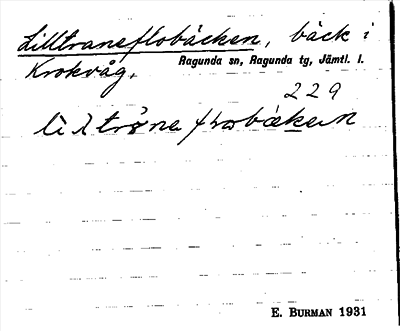 Lilltraneflobäcken, bäck i
Krokvåg.
Ragunda sn, Ragunda tg, Jämtl. l.
229
E. BURMAN 1931